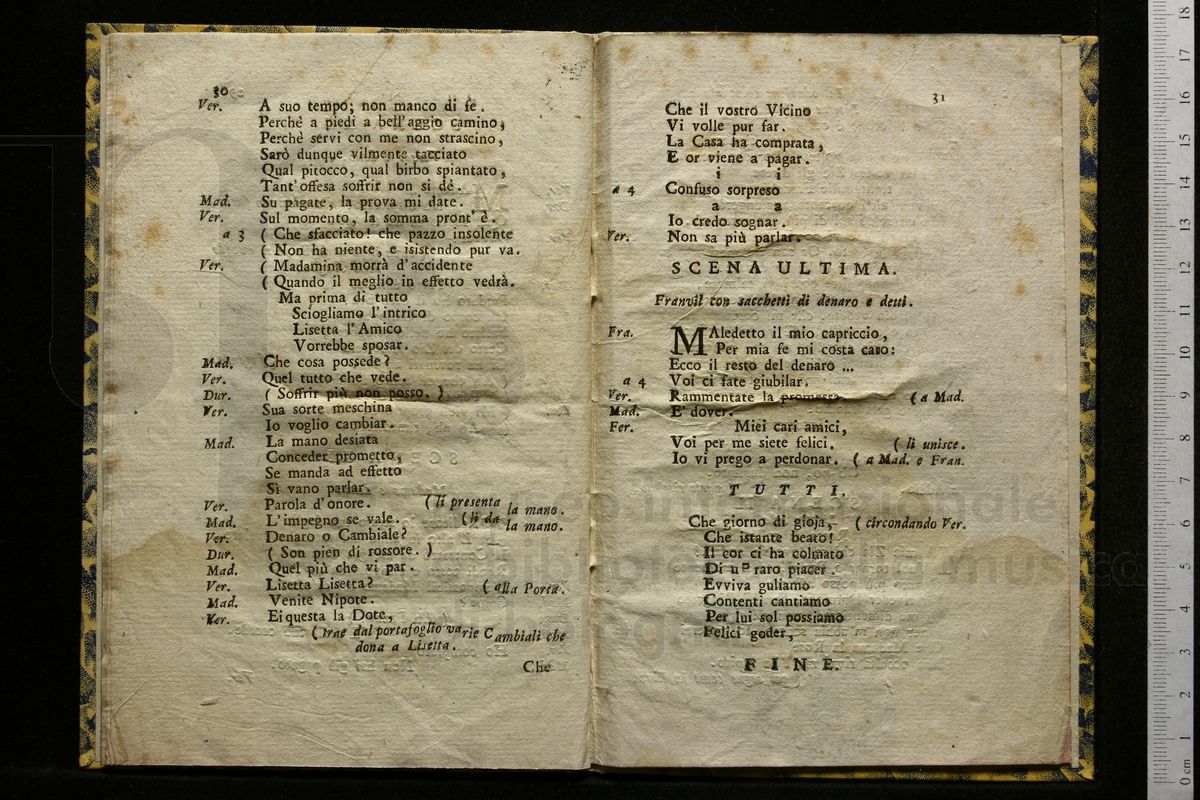 30
Ver. A suo tempo; non manco di fè.
Perchè a piedi a bell'aggio camino,
Perchè servi con me non strascino,
Sarò dunque vilmente tacciato
Qual pitocco, qual birbo spiantato,
Tant'offesa soffrir non si dè.
Mad. Su pagate, la prova mi date.
Ver. Sul momento, la somma pront'è.
a 3 ( Che sfacciato! che pazzo insolente
( Non ha niente, e isistendo pur va.
Ver. ( Madamina morrà d'accidente
( Quando il meglio in effetto vedrà.
Ma prima di tutto
Sciogliamo l'intrico
Lisetta l'Amico
Vorrebbe sposar.
Mad. Che cosa possede?
Ver. Quel tutto che vede.
Dur. ( Soffrir più non posso. )
Ver. Sua sorte meschina
Io voglio cambiar.
Mad. La mano desiata
Conceder prometto,
Se manda ad effetto
Sì vano parlar.
Ver. Parola d'onore. ( li presenta la mano.
Mad. L'impegno se vale. ( li da la mano.
Ver. Denaro o Cambiale?
Dur. ( Son pien di rossore. )
Mad. Quel più che vi par.
Ver. Lisetta Lisetta? ( alla Porta.
Mad. Venite Nipote.
Ver. Ei questa la Dote,
( trae dal portafoglio varie Cambiali che
dona a Lisetta.
Che
31
Che il vostro Vicino
Vi volle pur far.
La Casa ha comprata,
E or viene a pagar.
i i
a 4 Confuso sorpreso
a a
Io credo sognar.
Ver. Non sa più parlar.
SCENA ULTIMA.
Franvil con sacchetti di denaro e detti.
Fra. MAledetto il mio capriccio,
Per mia fe mi costa caro:
Ecco il resto del denaro ...
a 4 Voi ci fate giubilar.
Ver. Rammentate la promessa ( a Mad.
Mad. E' dover.
Fer. Miei cari amici,
Voi per me siete felici. ( li unisce.
Io vi prego a perdonar. ( a Mad. e Fran.
TUTTI.
Che giorno di gioja, ( circondando Ver.
Che istante beato!
Il cor ci ha colmato
Di un raro piacer.
Evviva guliamo
Contenti cantiamo
Per lui sol possiamo
Felici goder,
FINE.